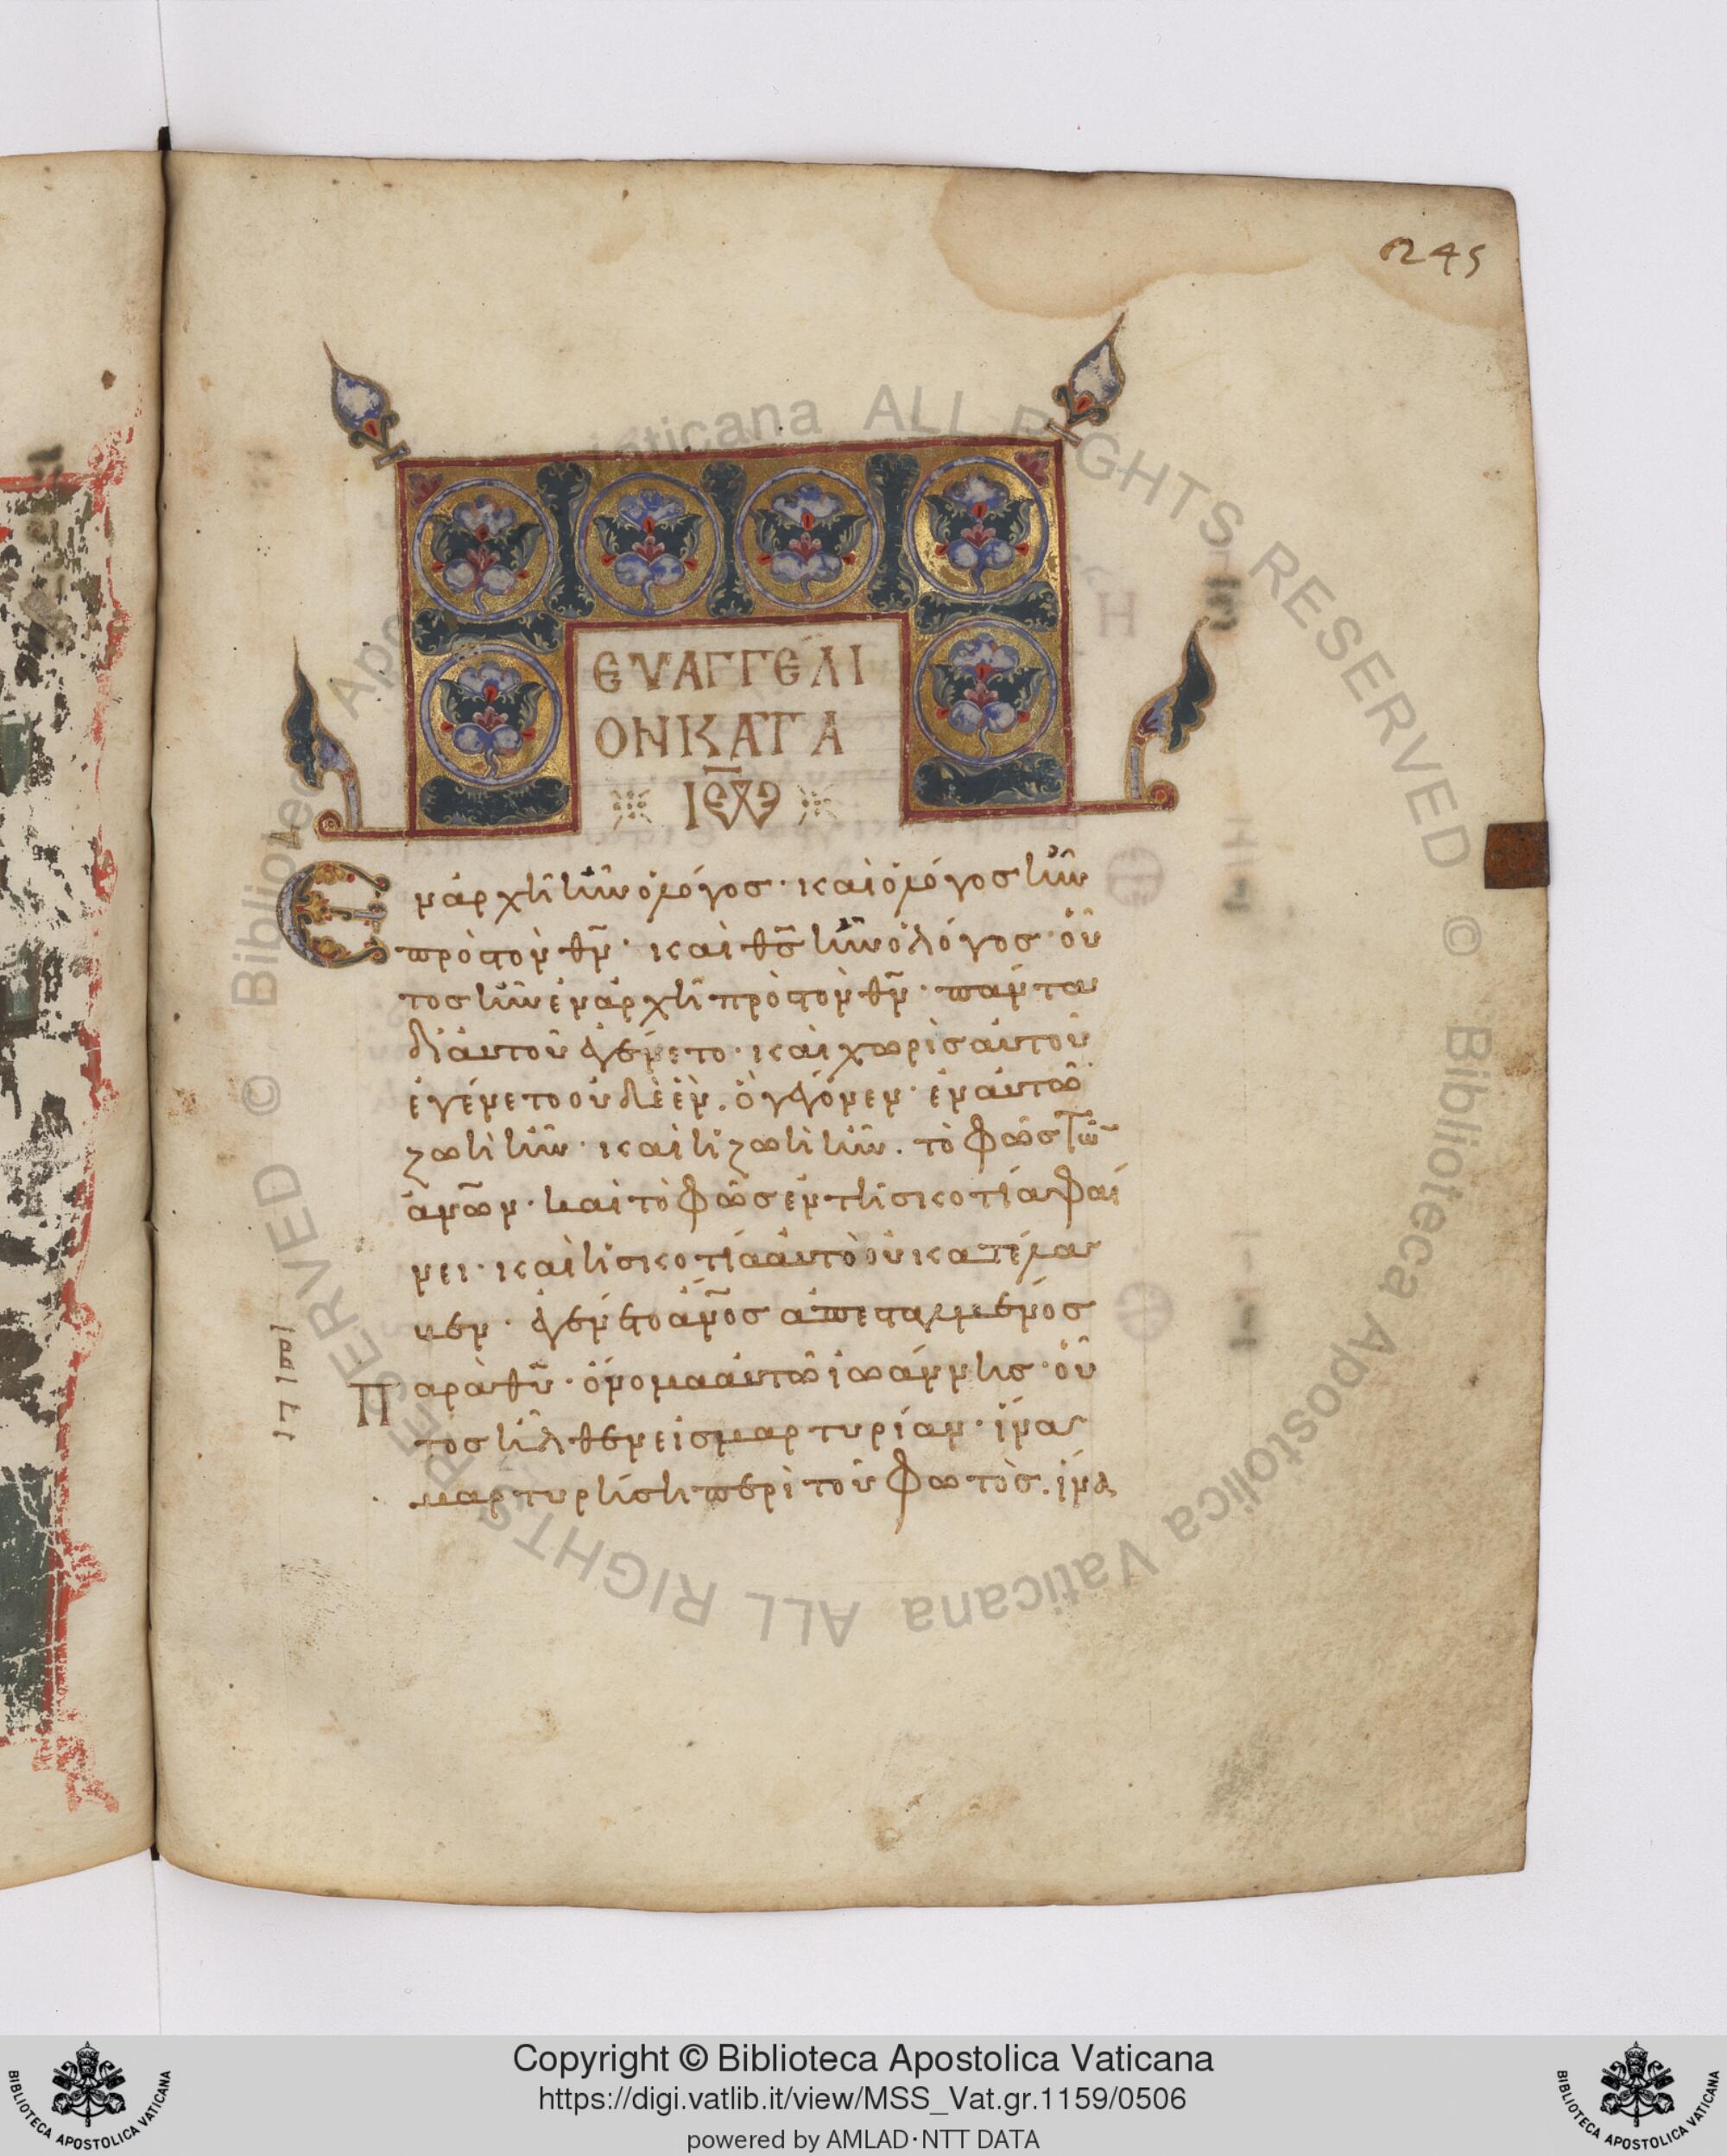 245
ΕΥΑΓΓΕΛΙ
ΟΝ ΚΑΤΑ
ΙΩ
Ἐν ἀρχῆ ἦν ὁ λόγος· καὶ ὁ λόγος ἦν
πρὸς τὸν θ̅ν̅· καὶ θ̅ς̅ ἦν ὁ λόγος· οὗ
τος ἦν ἐν ἀρχῆ πρὸς τὸν θ̅ν̅· πάντα
δι' αὐτοῦ ἐγένετο· καὶ χωρὶς αὐτοῦ
ἐγένετο οὐδὲ ἕν. ὃ γέγονεν· ἐν αὐτῶ
ζωὴ ἦν· καὶ ἡ ζωὴ ἦν. τὸ φῶς τῶν
ἀν̅ω̅ν· καὶ τὸ φῶς ἐν τῆ σκοτία φαί
νει· καὶ ἡ σκοτία αὐτὸ οὐ κατέλα
βεν· ἐγένετο ἄν̅ος ἀπεσταλμένος
παρὰ θ̅υ̅· ὄνομα αὐτῶ ἰωάννης· οὗ
τος ἦλθεν εἰς μαρτυρίαν· ἵνα
μαρτυρήση περὶ τοῦ φωτός. ἵνα
ALL RIGHTS RESERVED © Biblioteca Apostolica Vaticana ALL RIGHTS RESERVED © Biblioteca Apostolica Vaticana
Copyright © Biblioteca Apostolica Vaticana
https://digi.vatlib.it/view/MSS_Vat.gr.1159/0506
powered by AMLAD·NTT DATA
BIBLIOTECA APOSTOLICA VATICANA
BIBLIOTECA APOSTOLICA VATICANA